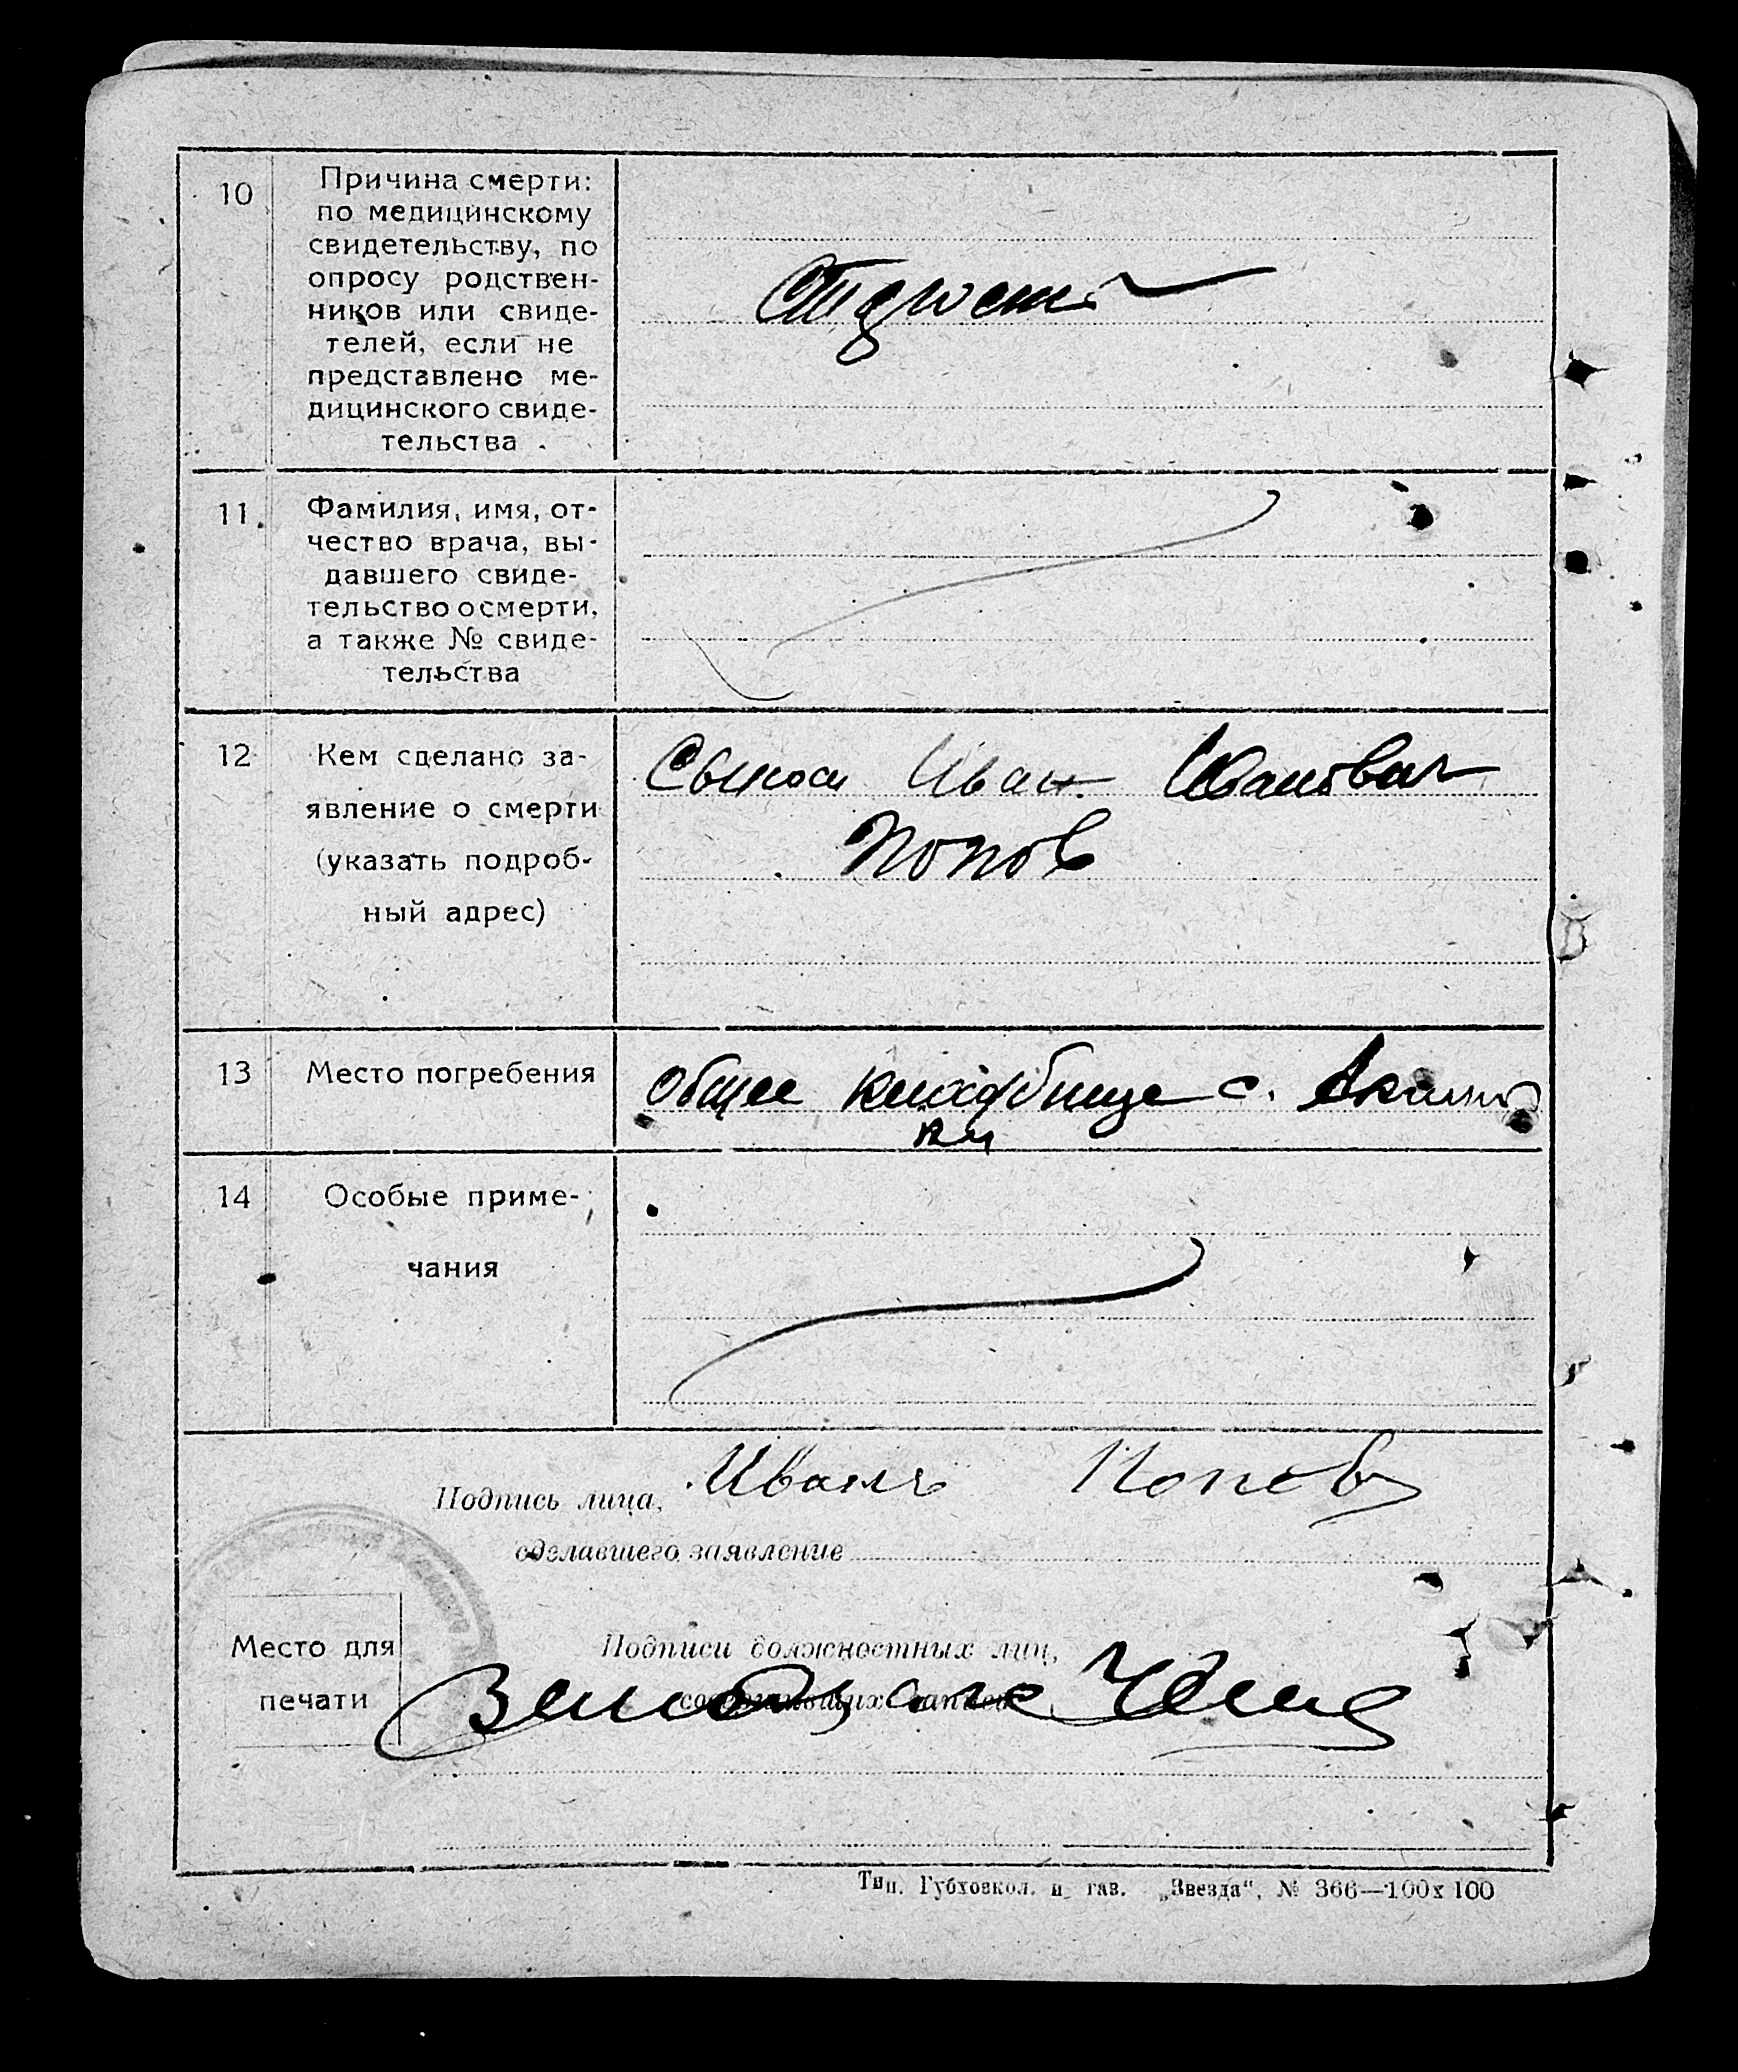 10
Причина смерти:
по медицинскому
свидетельству, по
опросу родствен-
ников или свиде-
телей, если не
представлено ме-
дицинского свиде-
тельства
11.
Фамилия, имя, от-
чество врача, вы-
давшего свиде-
тельство о смерти,
а также № свиде-
тельства
12
Кем сделано за-
явление о смерти
(указать подроб-
ный адрес)
Сыном Иван Иванович
Попов
13
Место погребения
общее кладбище с.
14
Особые приме-
чания
Подпись лица,
Иванъ Попов
сделавшего заявление
Место для
печати
Подписи должностных лиц,
совершивших запись
Тип. Губховкол. и газ. „Звезда“, № 366—100х100